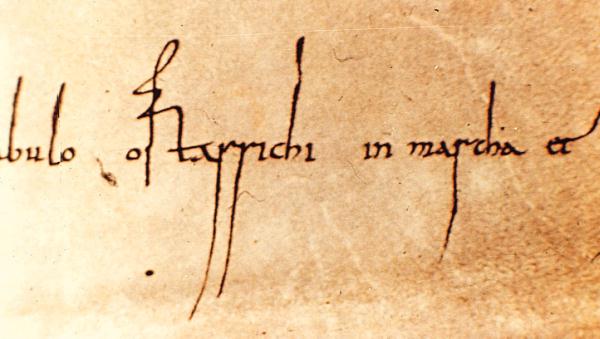 abulo ostarrichi in marcha et